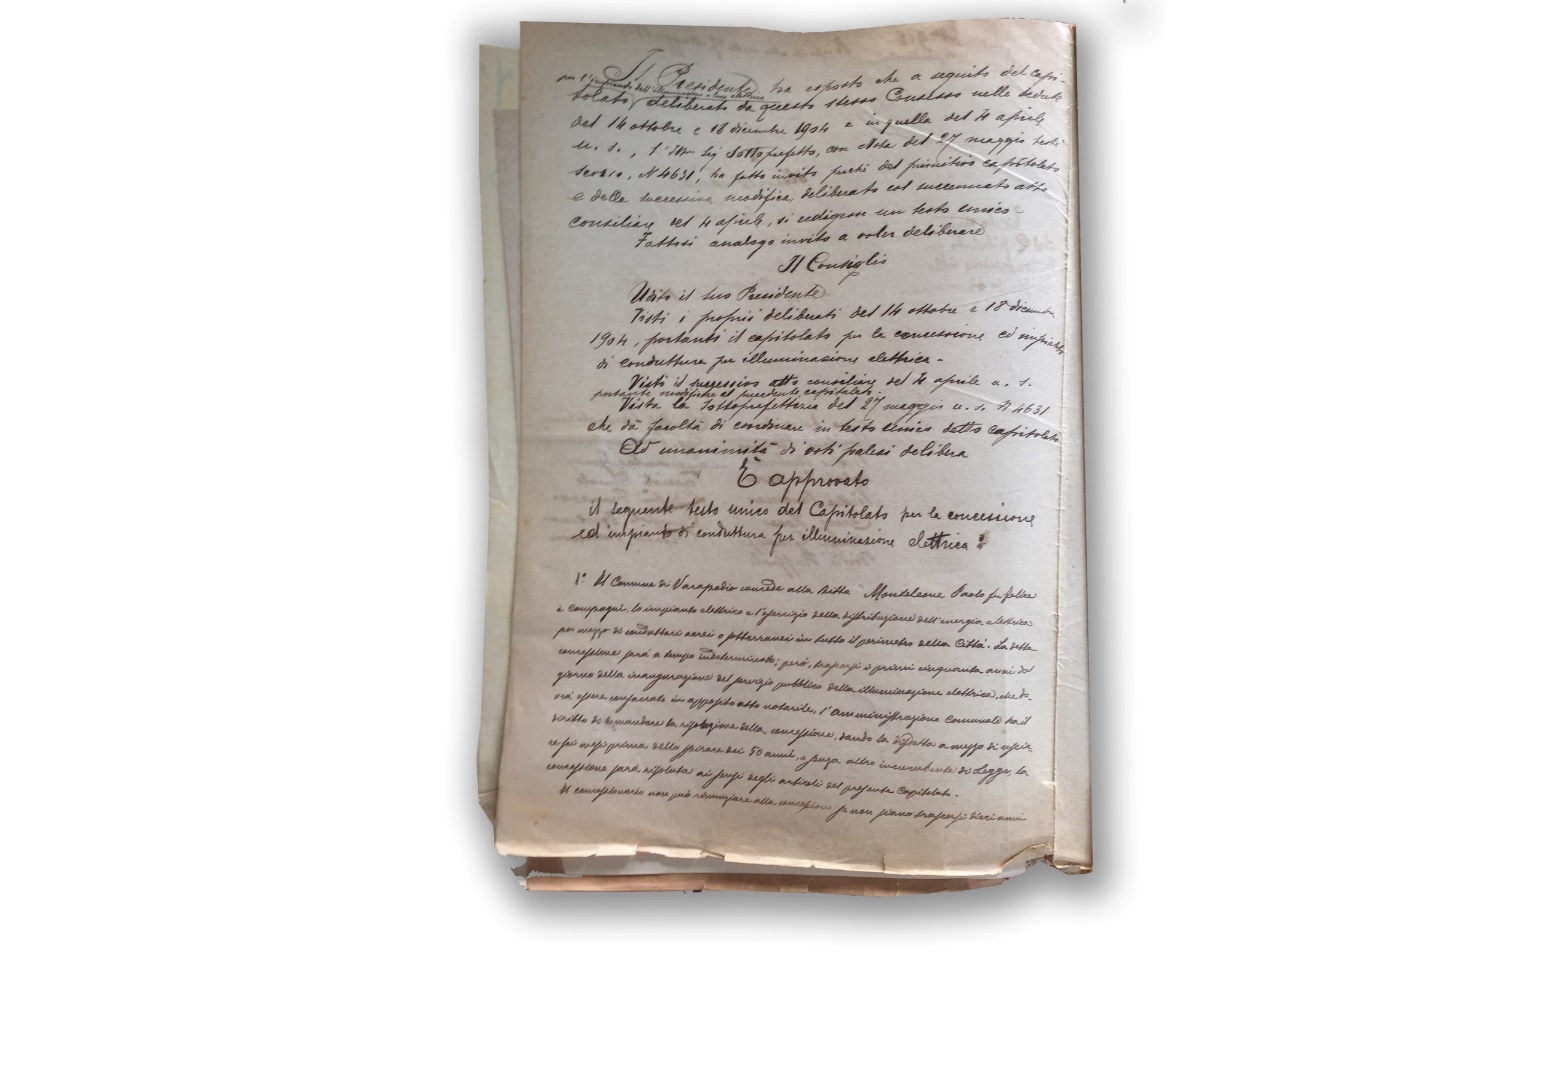 Il Presidente ha esposto che a seguito del capi-
per l'impianto dell'illuminazione a luce elettrica
tolato deliberato da questo stesso Consesso nelle sedute
del 14 ottobre e 18 dicembre 1904 e in quella del 4 aprile
u. s., l'Ill.mo Sig Sottoprefetto, con Nota del 27 maggio testè
scorso, N 4631, ha fatto invito perchè del primitivo capitolato
e della successiva modifica, deliberata col succennato atto
consiliare del 4 aprile, si redigesse un testo unico -
Fattosi analogo invito a voler deliberare
Il Consiglio
Udito il suo Presidente
Visti i proprii deliberati del 14 ottobre e 18 dicembre
1904, portanti il capitolato per la concessione ed impianto
di conduttura per illuminazione elettrica -
Visti il successivo atto consiliare del 4 aprile u. s.
portante modifiche al precedente capitolato -
Vista la Sottoprefettizia del 27 maggio u. s. N 4631
che dà facoltà di coordinare in testo unico detto capitolato
Ad unanimità di voti palesi delibera
È approvato
il seguente testo unico del Capitolato per la concessione
ed impianto di conduttura per illuminazione elettrica:
1° Il Comune di Varapodio concede alla Ditta Monteleone Paolo fu Felice
e compagni, lo impianto elettrico e l'esercizio della distribuzione dell'energia elettrica
per mezzo di conduttori aerei o sotterranei in tutto il perimetro della Città. La detta
concessione sarà a tempo indeterminato; però, trascorsi i primi cinquanta anni dal
giorno della inaugurazione del servizio pubblico della illuminazione elettrica, che do-
vrà essere consacrato in apposito atto notarile, l'Amministrazione comunale ha il
diritto di domandare la risoluzione della concessione, dando la disdetta a mezzo di uscie-
re sei mesi prima dello spirare dei 50 anni, e senza altro incombente di Legge, la
concessione sarà risoluta ai sensi degli articoli del presente Capitolato.
Il concessionario non può rinunziare alla concessione se non siano trascorsi dieci anni